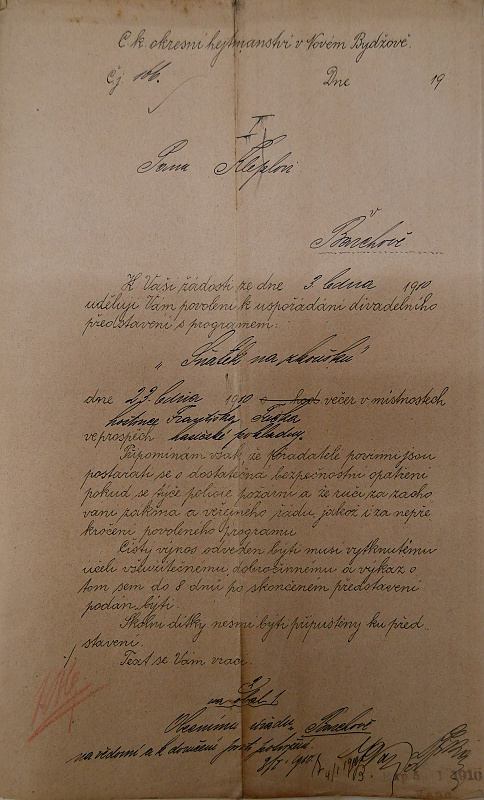 C. k. okresní hejtmanství v Novém Bydžově.
Čj. 166. Dne 19
I
Panu Kleplovi
v
Barchově
K Vaší žádosti ze dne 3. ledna 1910
uděluji Vám povolení k uspořádání divadelního
představení s programem:
„Sňatek na zkoušku"
dne 29 ledna 1910 večer v místnostech
hostince Františky
ve prospěch hasičské pokladny.
Připomínám však, že pořadatelé povinni jsou
postarati se o dostatečná bezpečnostní opatření
pokud se týče policie požární a že ručí za zacho
vání zákona a veřejného řádu, jakož i za nepře
kročení povoleného programu.
Čistý výnos odveden býti musí vytknutému
účeli všeužitečnému, dobročinnému a výkaz o
tom sem do 8 dnů po skončeném představení
podán býti.
Školní dítky nesmí býti připuštěny ku před-
stavení.
Text se Vám vrací.
Obecnímu úřadu Barchově
na vědomí a k doručení
1910